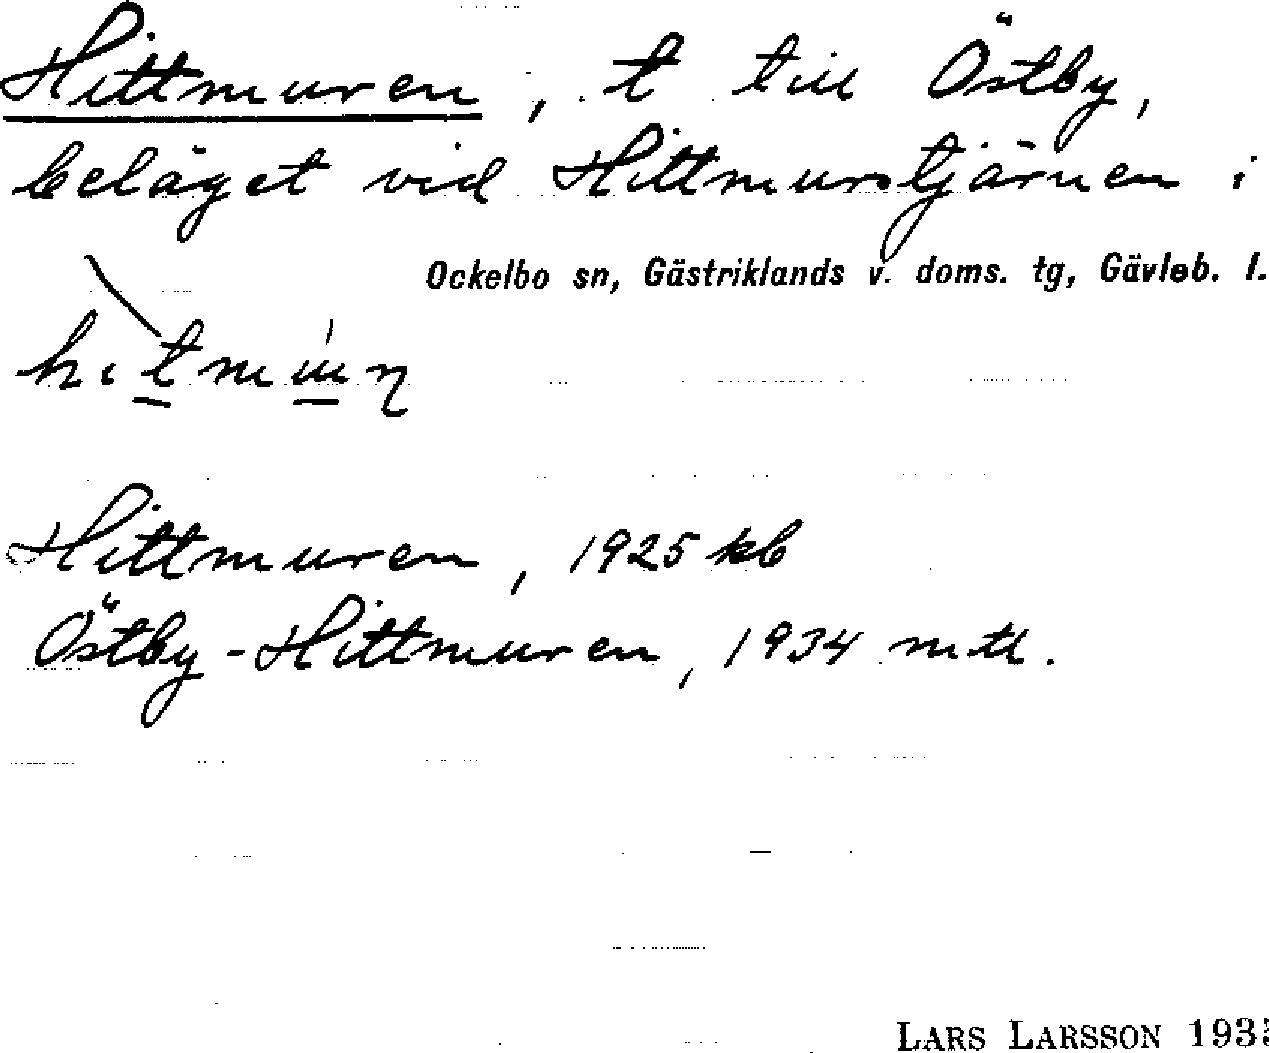 Hittmuren, t till Östby,
beläget vid Hittmurstjärnen i
Ockelbo sn, Gästriklands v. doms. tg, Gävleb. l.
Hittmuren, 1925 kb
Östby-Hittmuren, 1934 mtl.
LARS LARSSON 193